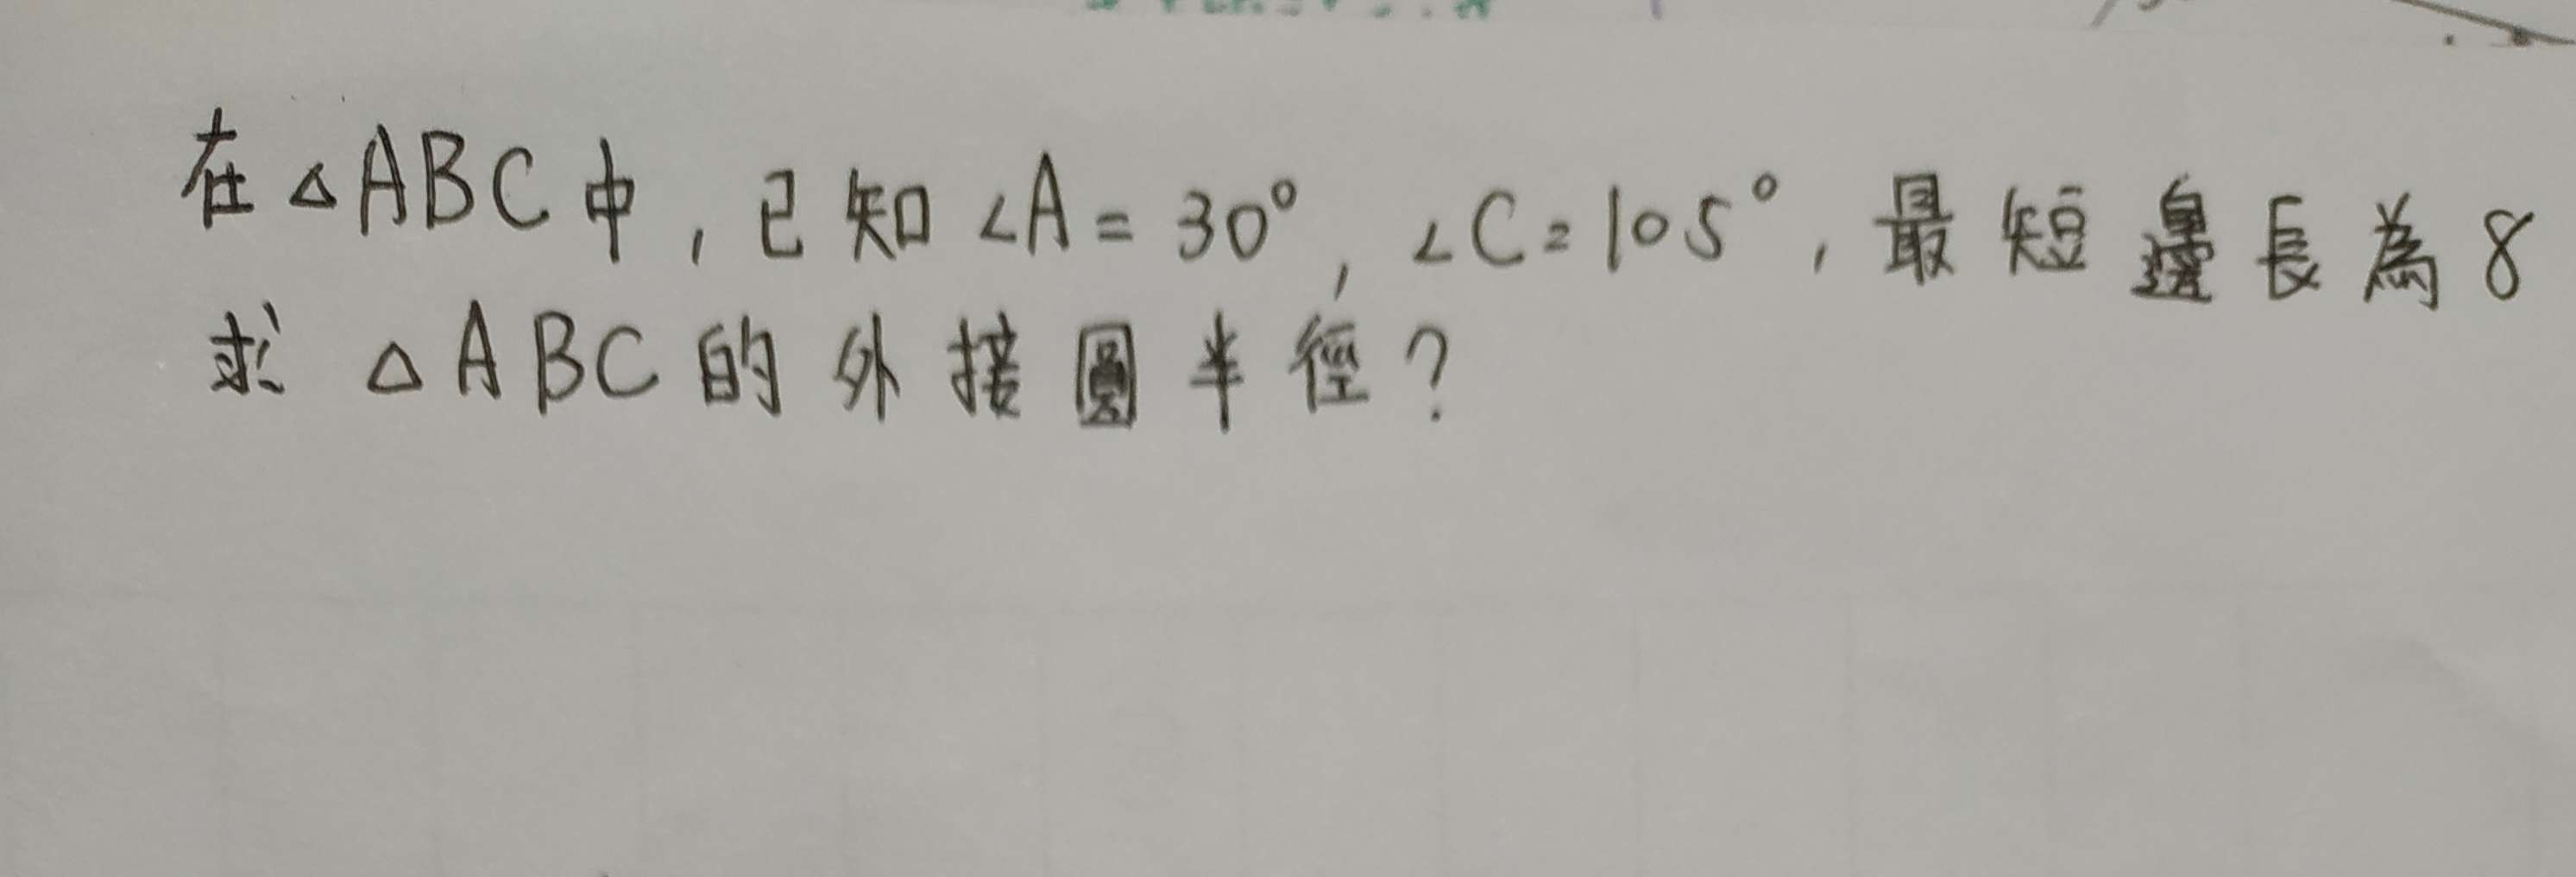 在△ABC中,已知∠A=30°,∠C=105°,最短邊長為8
求△ABC的外接圓半徑?